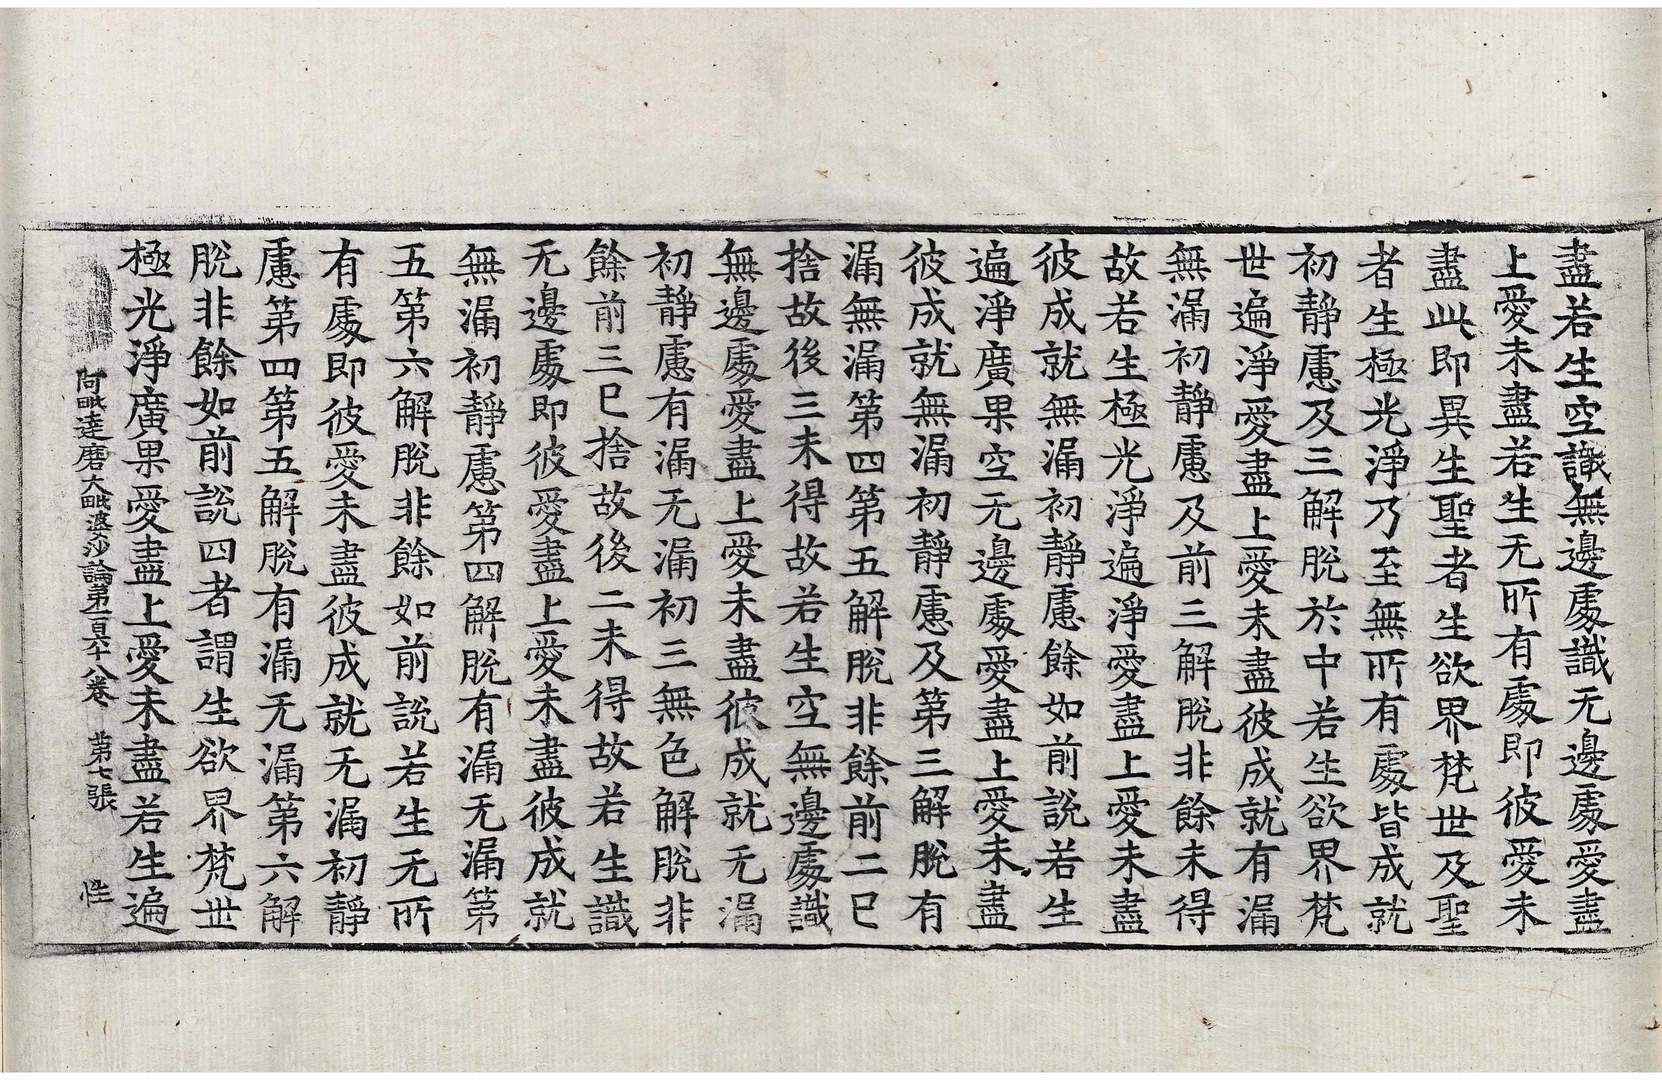 盡若生空識無邊處識无邊處愛盡
上愛未盡若生无所有處即彼愛未
盡此即異生聖者生欲界梵世及聖
者生極光淨乃至無所有處皆成就
初靜慮及三解脫於中若生欲界梵
世遍淨愛盡上愛未盡彼成就有漏
無漏初靜慮及前三解脫非餘未得
故若生極光淨遍淨愛盡上愛未盡
彼成就無漏初靜慮餘如前說若生
遍淨廣果空无邊處愛盡上愛未盡
彼成就無漏初靜慮及第三解脫有
漏無漏第四第五解脫非餘前二已
捨故後三未得故若生空無邊處識
無邊處愛盡上愛未盡彼成就无漏
初靜慮有漏无漏初三無色解脫非
餘前三已捨故後二未得故若生識
无邊處即彼愛盡上愛未盡彼成就
無漏初靜慮第四解脫有漏无漏第
五第六解脫非餘如前說若生无所
有處即彼愛未盡彼成就无漏初靜
慮第四第五解脫有漏无漏第六解
脫非餘如前說四者謂生欲界梵世
極光淨廣果愛盡上愛未盡若生遍
阿毗達磨大毗婆沙論第一百六十八卷 第七張 性